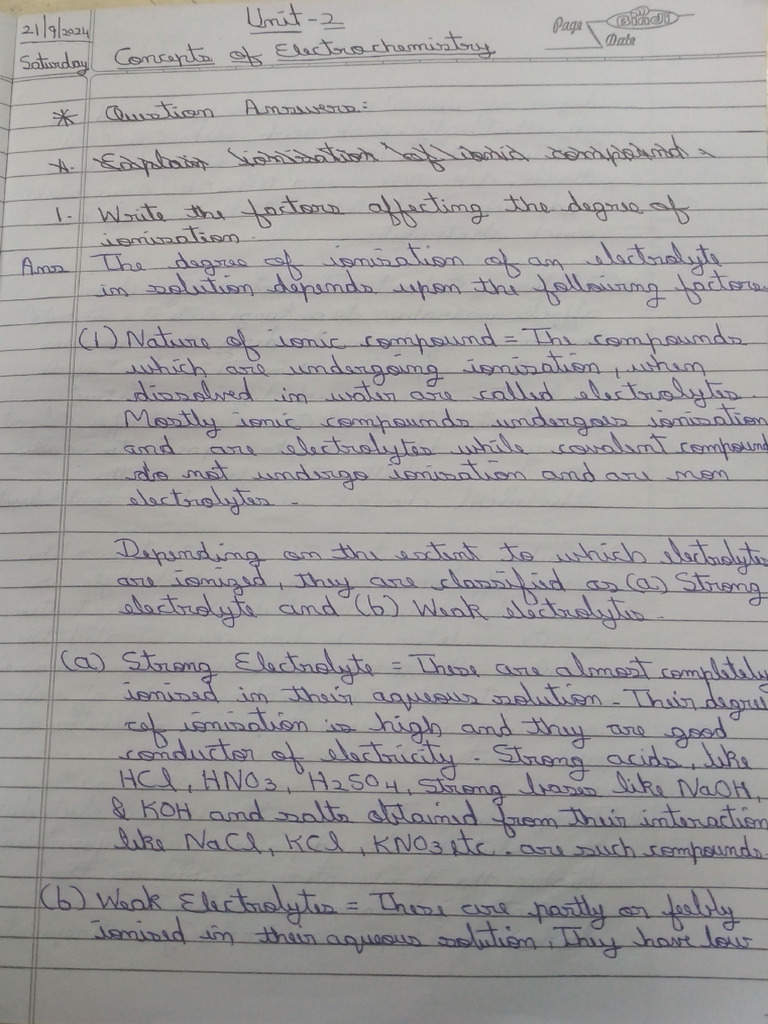 21/9/2024
Saturday
Unit-2
Page
Date
Concepts of Electrochemistry
* Question Answers:
1. Write the factors affecting the degree of
ionisation.
Ans The degree of ionisation of an electrolyte
in solution depends upon the following factors.
(1) Nature of ionic compound = The compounds
which are undergoing ionisation, when
dissolved in water are called electrolytes.
Mostly ionic compounds undergoes ionisation
and are electrolytes while covalent compound
do not undergo ionisation and are non
electrolytes.
Depending on the extent to which electrolytes
are ionized, they are classified as (a) Strong
electrolyte and (b) Weak electrolytes.
(a) Strong Electrolyte = These are almost completely
ionised in their aqueous solution. Their degree
of ionisation is high and they are good
conductor of electricity. Strong acids, like
HCl, HNO3, H2SO4, strong bases like NaOH,
& KOH and salts obtained from their interaction
like NaCl, KCl, KNO3 etc. are such compounds.
(b) Weak Electrolytes = These are partly or feebly
ionised in their aqueous solution. They have low